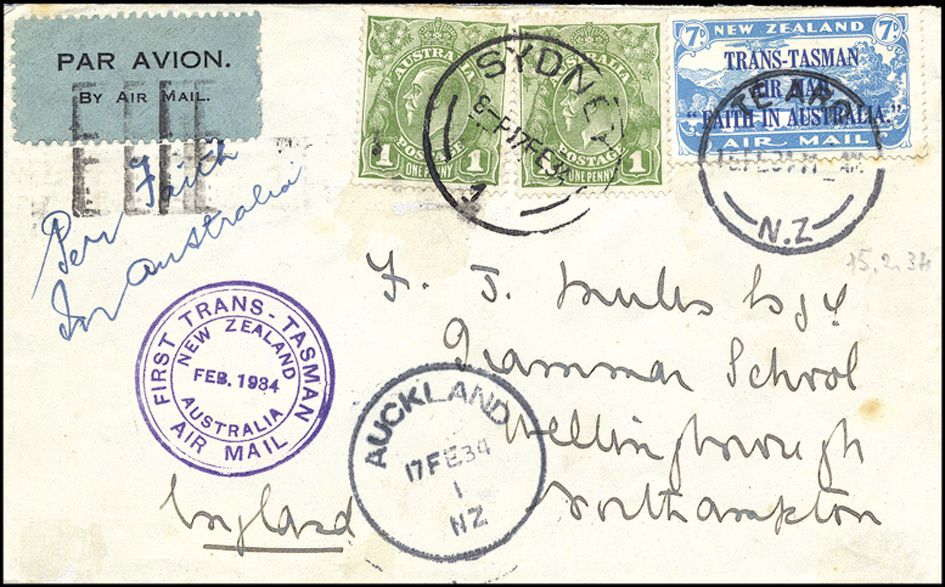 PAR AVION.
BY AIR MAIL.
Per Faith
In Australia
AUSTRALIA
POSTAGE
1 ONE PENNY 1
AUSTRALIA
POSTAGE
1 ONE PENNY 1
SYDNEY
17FE34
7D NEW ZEALAND 7D
TRANS-TASMAN
AIR MAIL
"FAITH IN AUSTRALIA."
AIR MAIL
TE ARO
N.Z
15.2.34
FIRST TRANS-TASMAN
AIR MAIL
NEW ZEALAND
FEB. 1934
AUSTRALIA
AUCKLAND
17FE34
1
NZ
F. J. Esq
Grammar School
Wellingborough
Northampton
England